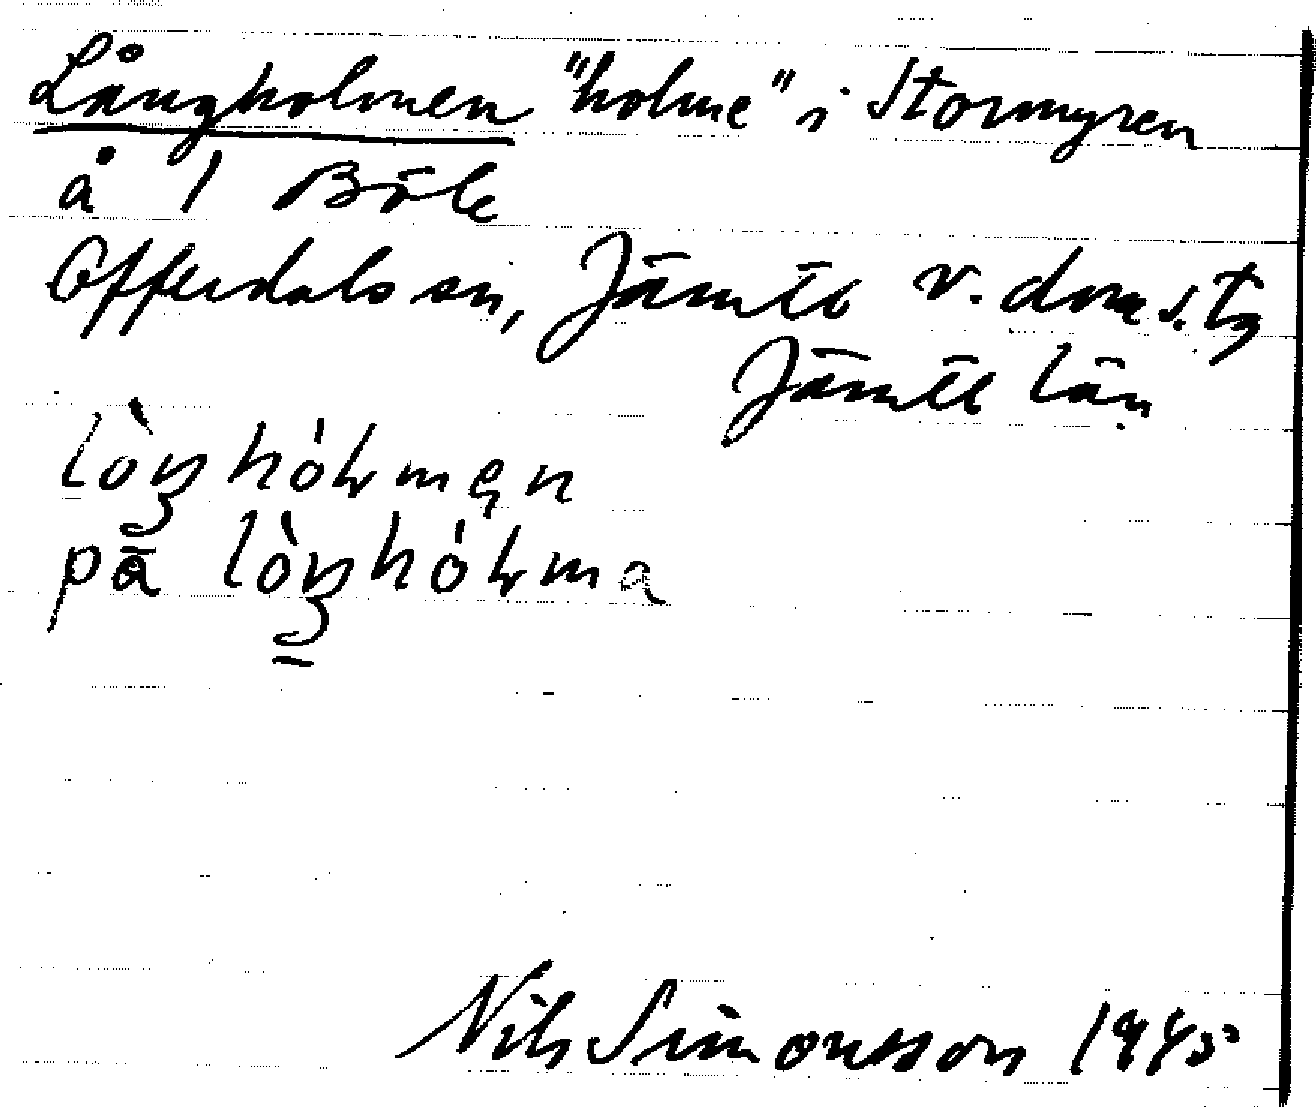 Långholmen "holme" i Stormyren
å 1 Böle
Offerdals sn, Jämtl v. doms. tg
Jämtl län
lòŋhóɫmęn
på̄ lòŋhóɫma
Nils Simonsson 1945